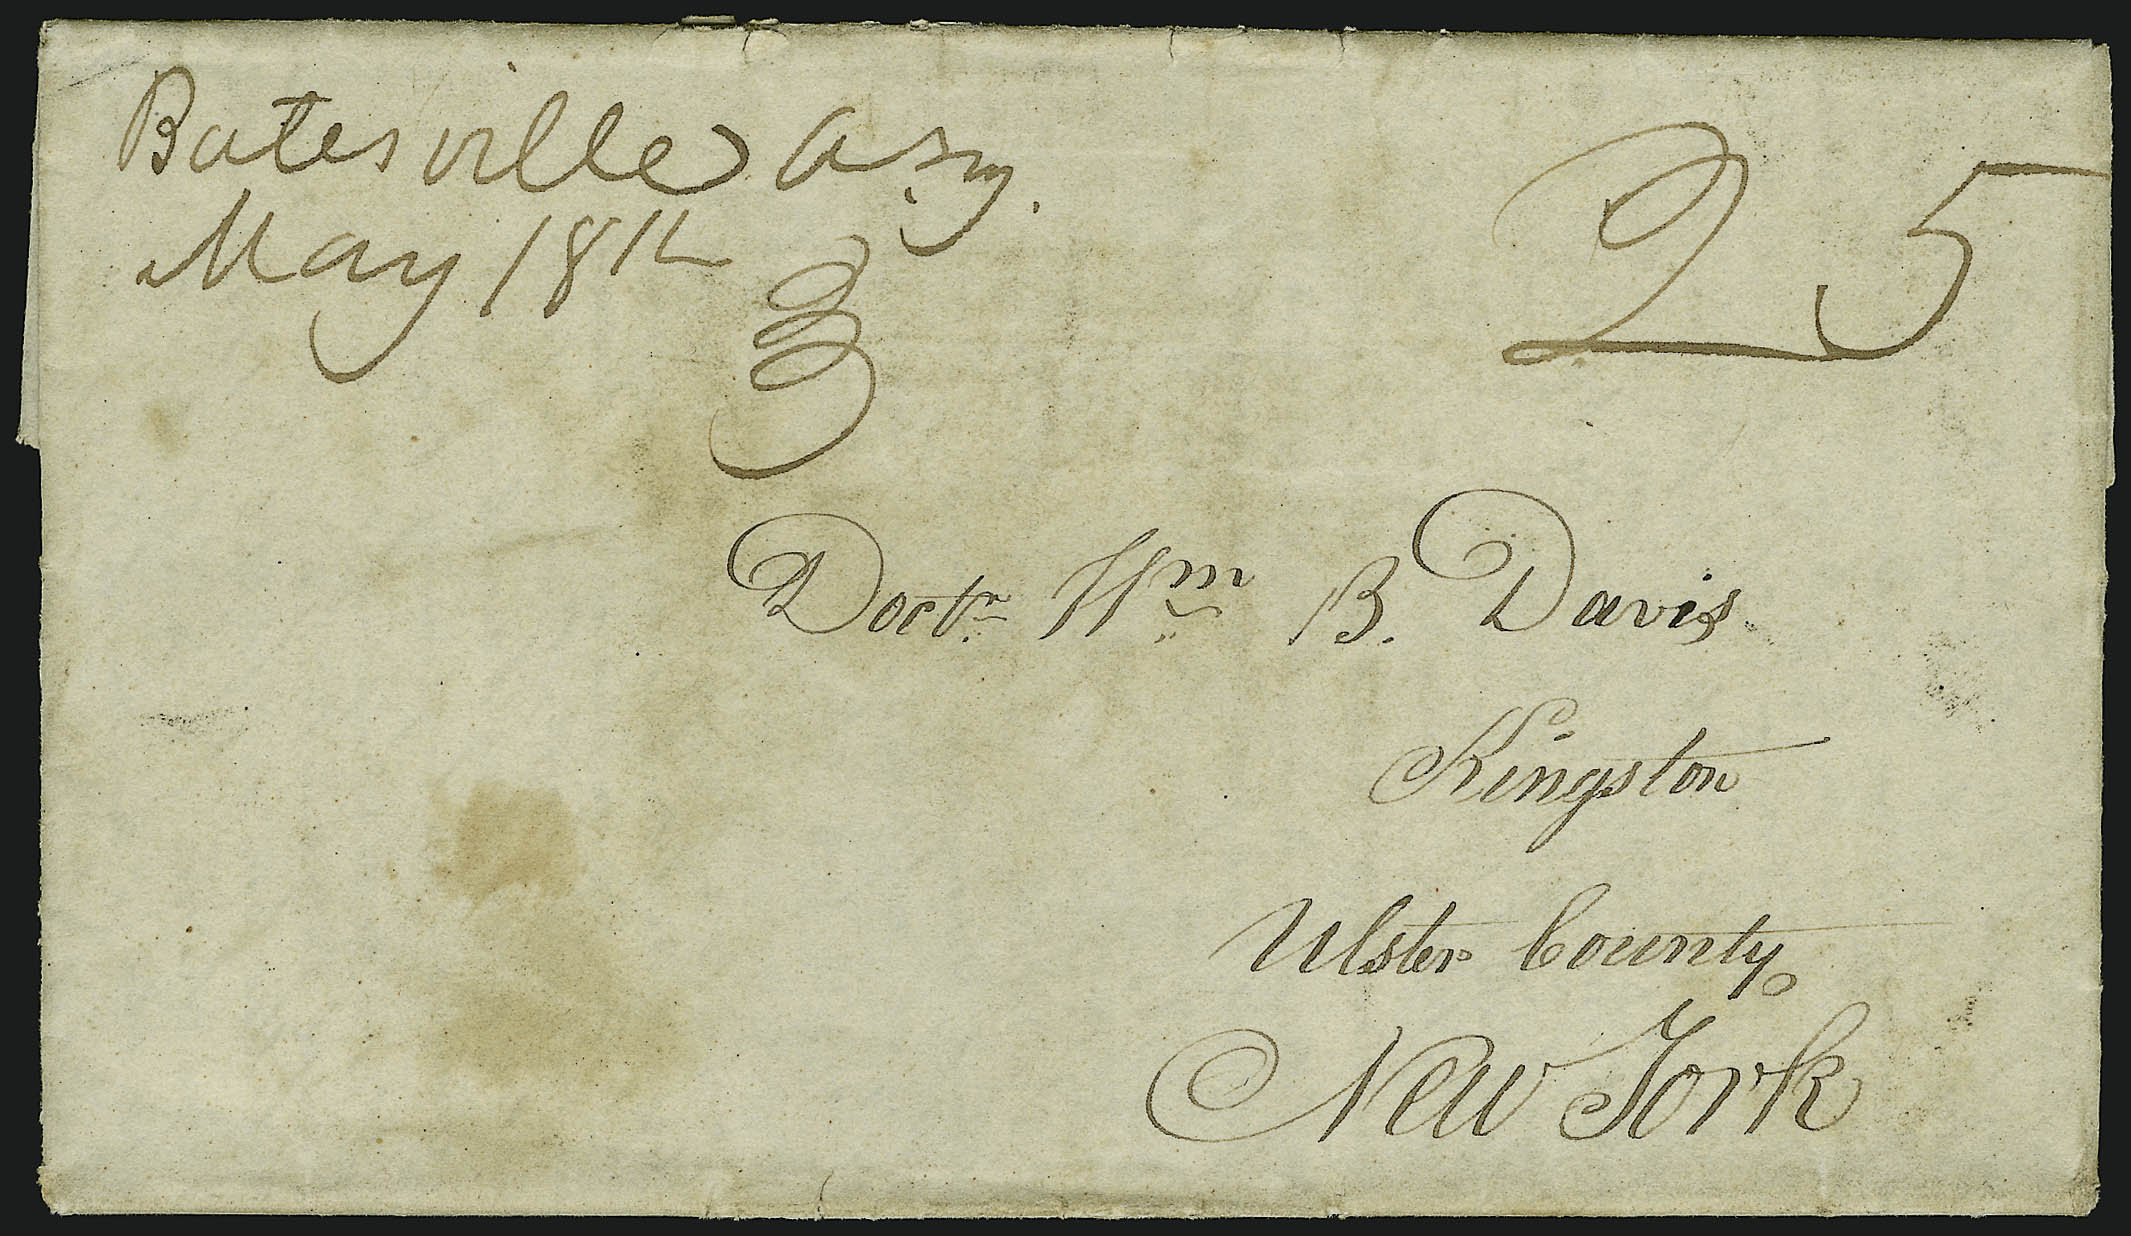 Batesville a.sy.
May 18th
25
Doctr Wm B. Davis
Kingston
Ulster County
New York